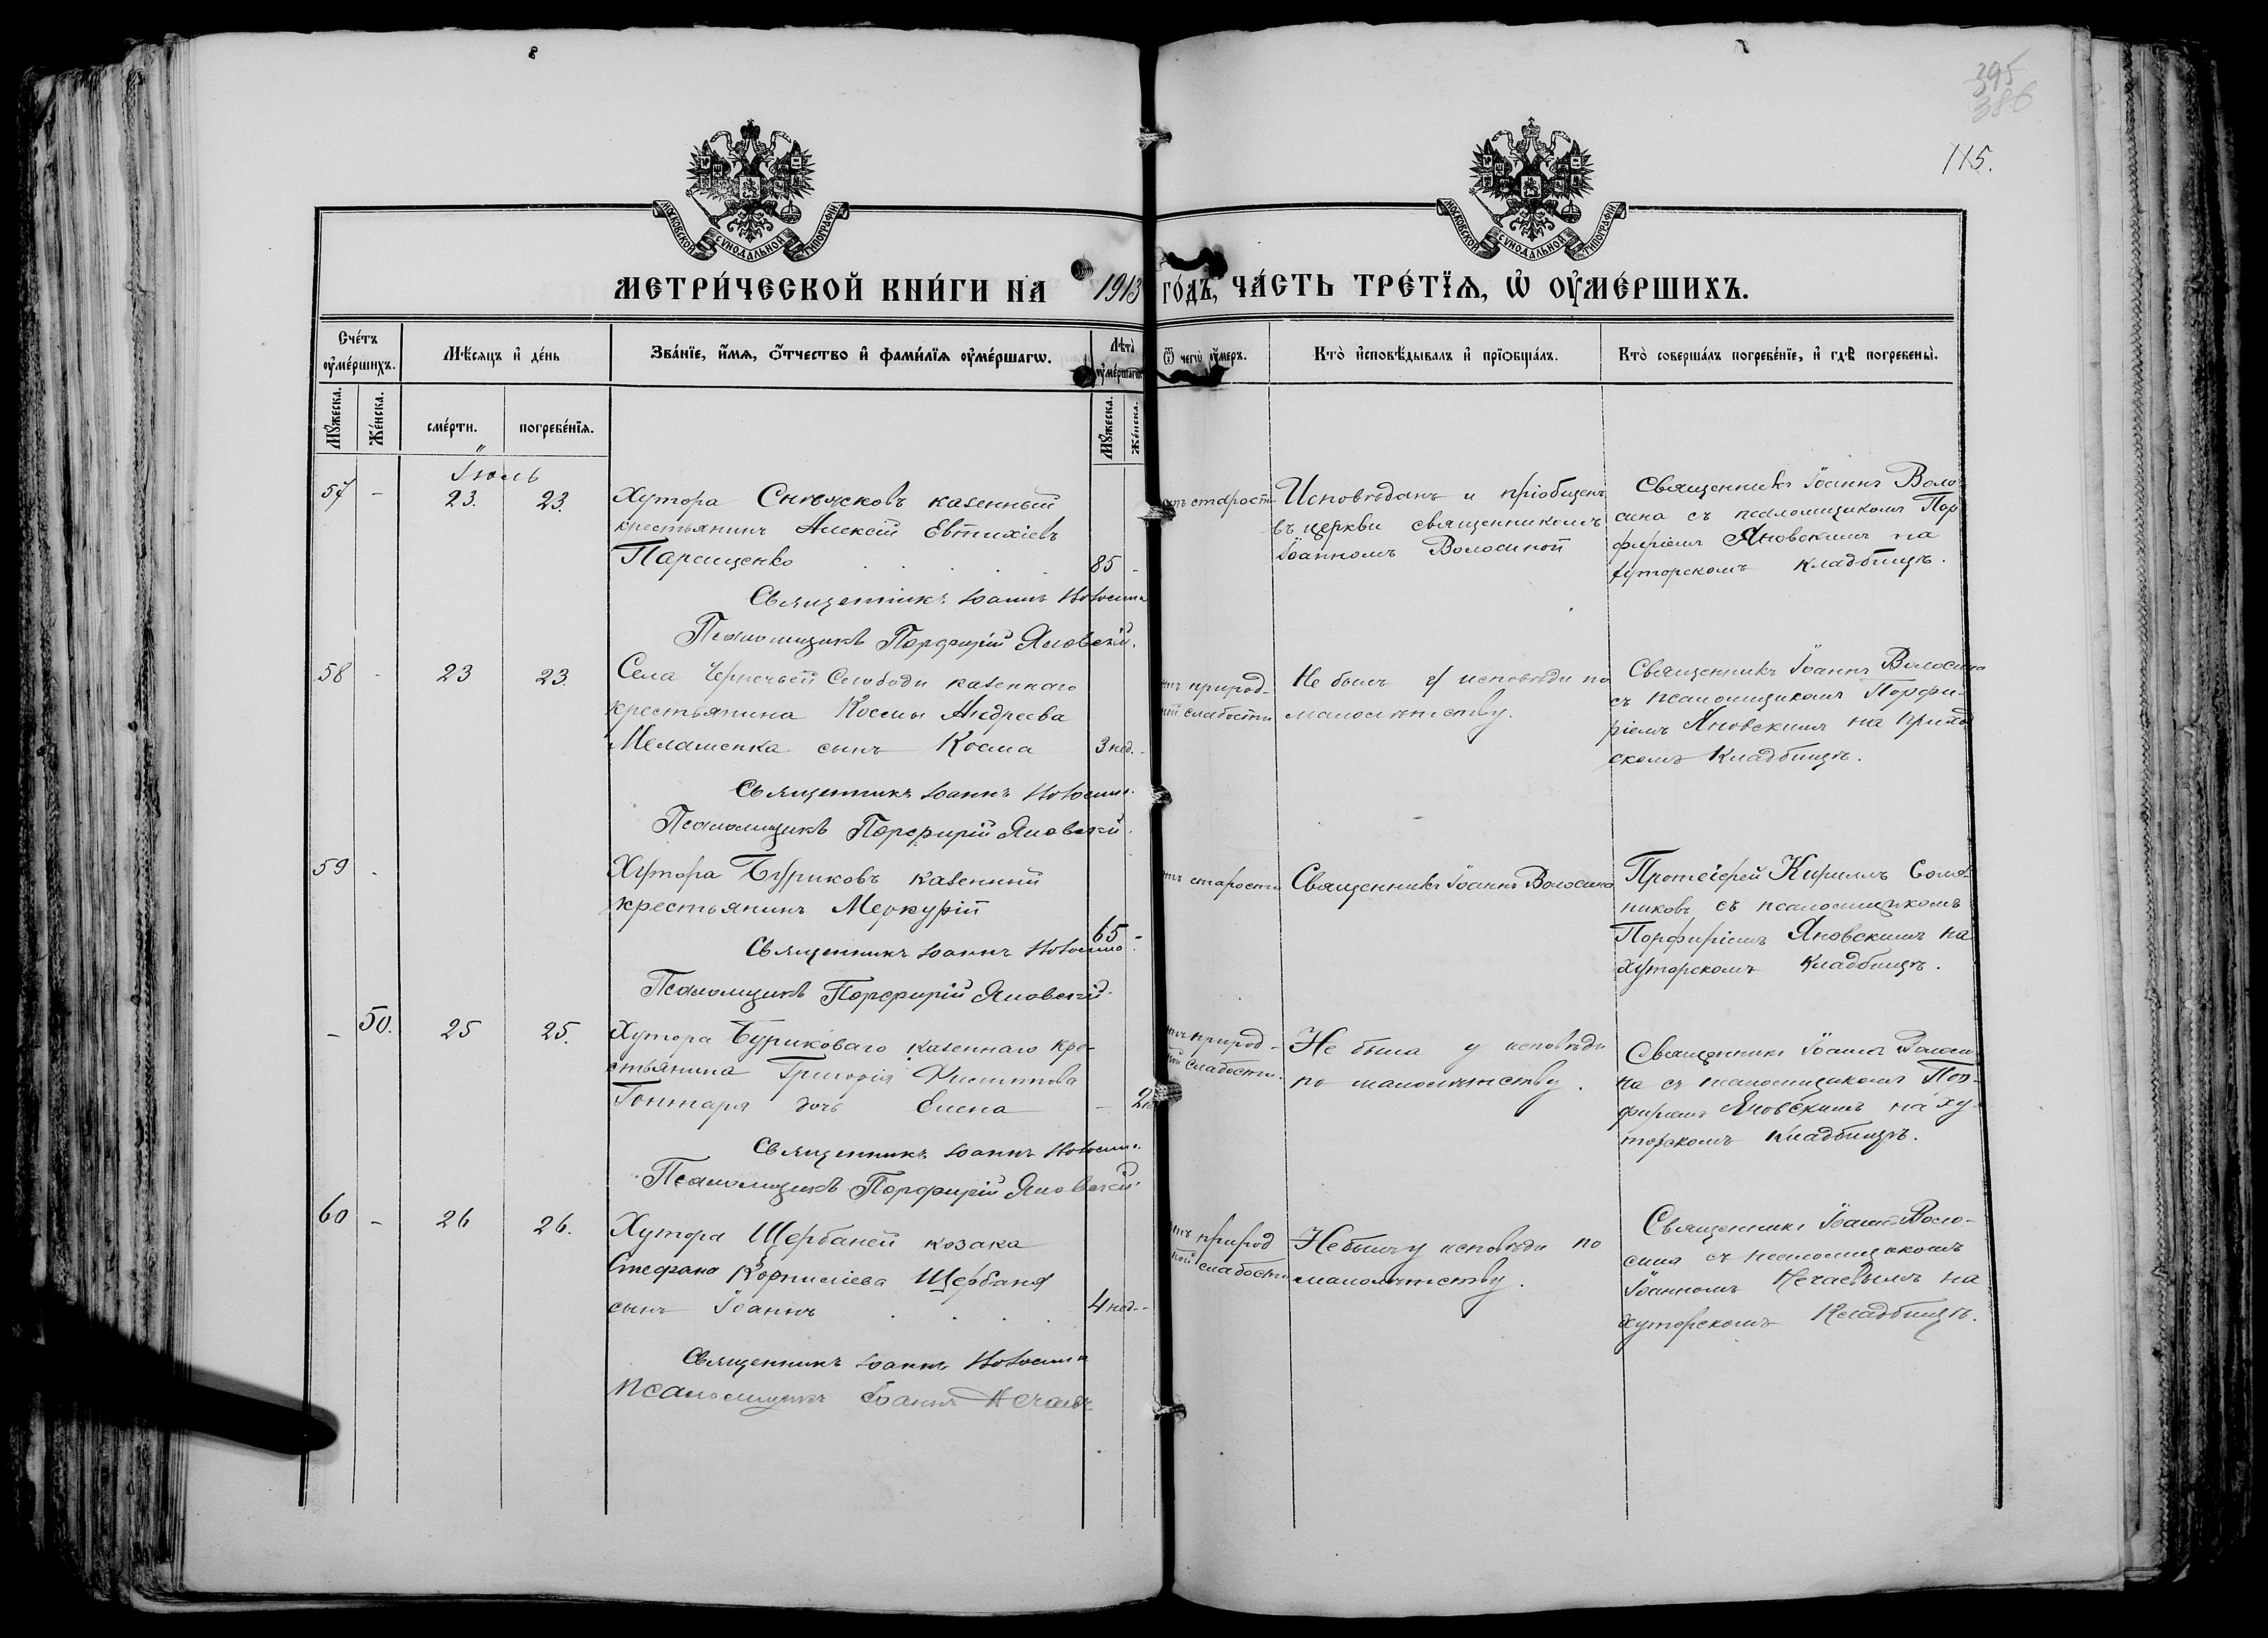 395
386
115.
МОСКОВСКОЙ СУНОДАЛЬНОЙ ТИПОГРАФІИ
МОСКОВСКОЙ СУНОДАЛЬНОЙ ТИПОГРАФІИ
МЕТРИ́ЧЕСКОЙ КНИ́ГИ НА 1913 ГО́ДЪ, ЧА́СТЬ ТРЕ́ТЇѦ, Ѡ҆ ОУ҆МЕ́РШИХЪ.
Сче́тъ оу҆ме́ршихъ.
Мѣ́сяцъ и҆ де́нь
Зва́нїе, и҆́мѧ, ѻ҆́тчество и҆ фами́лїѧ оу҆ме́ршагѡ.
Лѣ́та оу҆ме́ршагѡ
Ѿ чегѡ̀ оу҆́меръ.
Кто̀ и҆сповѣ́дывалъ и҆ прїѡбща́лъ.
Кто̀ соверша́лъ погребе́нїе, и҆ гдѣ̀ погребены̀.
Мꙋ́жеска.
Же́нска.
сме́рти.
погребе́нїѧ.
Мꙋ́жеска.
Же́нска.
Іюль
57 - 23. 23.
Хутора казенный
крестьянинъ Алексій Евтихіевъ
Паращенко 85 -
Священникъ Іоаннъ Волосина
Псаломщикъ Порфирій Яновскій.
отъ старости
Исповѣданъ и пріобщенъ
въ церкви священникомъ
Іоанномъ Волосиной
Священникъ Іоаннъ Воло
сина съ псаломщикомъ Пор
фиріемъ Яновскимъ на
хуторскомъ кладбищѣ.
58 - 23 23.
Села Чернечьей Слободи казеннаго
крестьянина Космы Андреева
Мелашенка сынъ Косма 3 нед. -
Священникъ Іоаннъ Волосина
Псаломщикъ Порфирій Яновскій.
отъ природ-
ной слабости
Не былъ у исповѣди по
малолѣтству.
Священникъ Іоаннъ Волосина
съ псаломщикомъ Порфи-
ріемъ Яновскимъ на приход
скомъ кладбищѣ.
59 -
Хутора Буриковъ казенный
крестьянинъ Меркурій
65 -
Священникъ Іоаннъ Волосина
Псаломщикъ Порфирій Яновскій.
отъ старости
Священникъ Іоаннъ Волосина
Протоіерей Кириллъ
съ псаломщикомъ
Порфиріемъ Яновскимъ на
хуторскомъ кладбищѣ.
- 50. 25 25.
Хутора Буриковаго казеннаго кре-
стьянина Григорія Филиппова
Гонтаря дочь Елена - 2
Священникъ Іоаннъ Волосина
Псаломщикъ Порфирій Яновскій
отъ природ-
ной слабости.
Не была у исповѣди
по малолѣтству.
Священникъ Іоаннъ Волоси
на съ псаломщикомъ Пор-
фиріемъ Яновскимъ на ху-
торскомъ кладбищѣ.
60 - 26 26.
Хутора Щербаней козака
Стефана Корнилieва Щербаня
сынъ Іоаннъ 4 нед. -
Священникъ Іоаннъ Волосина
Псаломщикъ Іоаннъ Нечаевъ
отъ природ
ной слабости
Не былъ у исповѣди по
малолѣтству.
Священникъ Іоаннъ Воло-
сина съ псаломщикомъ
Іоанномъ Нечаевымъ на
хуторскомъ кладбищѣ.